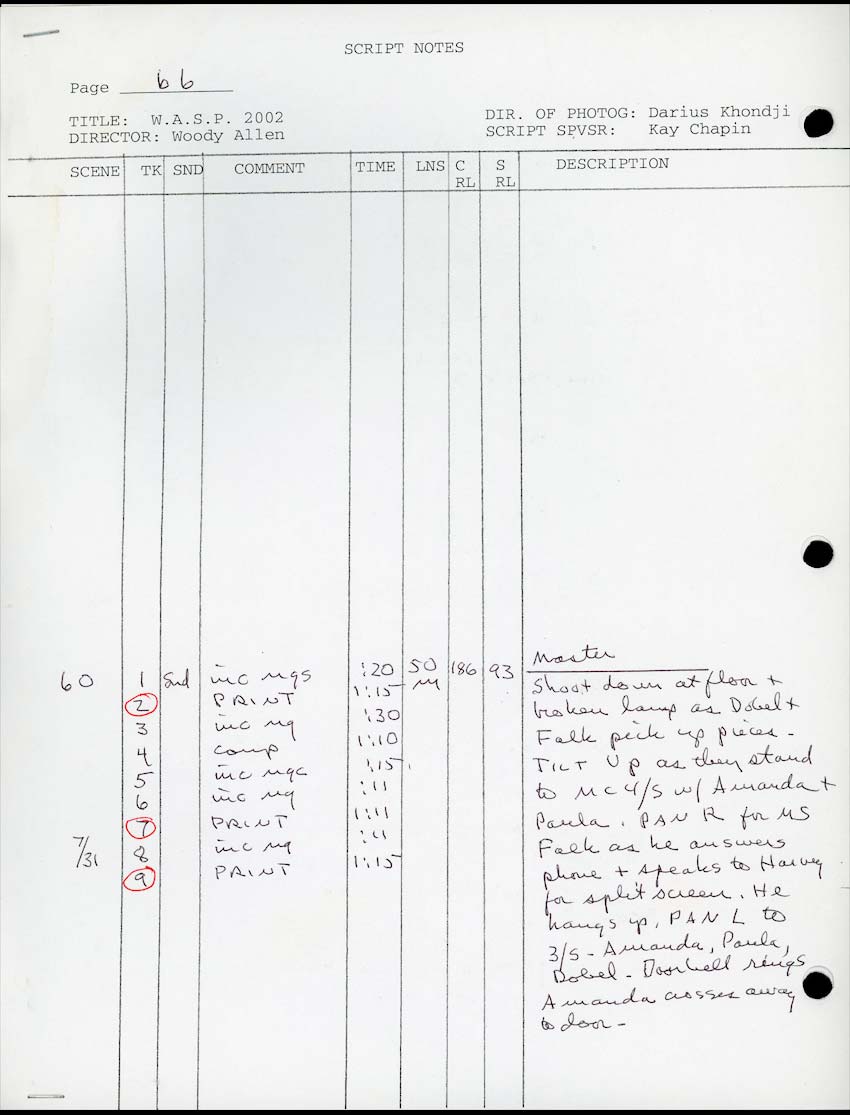 SCRIPT NOTES
Page 66
TITLE: W.A.S.P. 2002
DIRECTOR: Woody Allen
DIR. OF PHOTOG: Darius Khondji
SCRIPT SPVSR: Kay Chapin
SCENE TK SND COMMENT TIME LNS C RL S RL DESCRIPTION
60 1 Snd inc ngs :20 50 M 186 93
2 PRINT 1:15
3 inc ng :30
4 comp 1:10
5 inc ngc :15
6 inc ng :11
7 PRINT 1:11
7/31 8 inc ng :11
9 PRINT 1:15
Master
Shoot down at floor +
broken lamp as Dobel +
Falk pick up pieces -
TILT Up as they stand
to MC 4/S w/ Amanda +
Paula. PAN R for MS
Falk as he answers
phone + speaks to Harvey
for split screen. He
hangs up, PAN L to
3/S - Amanda, Paula,
Dobel - Doorbell rings
Amanda crosses away
to door -